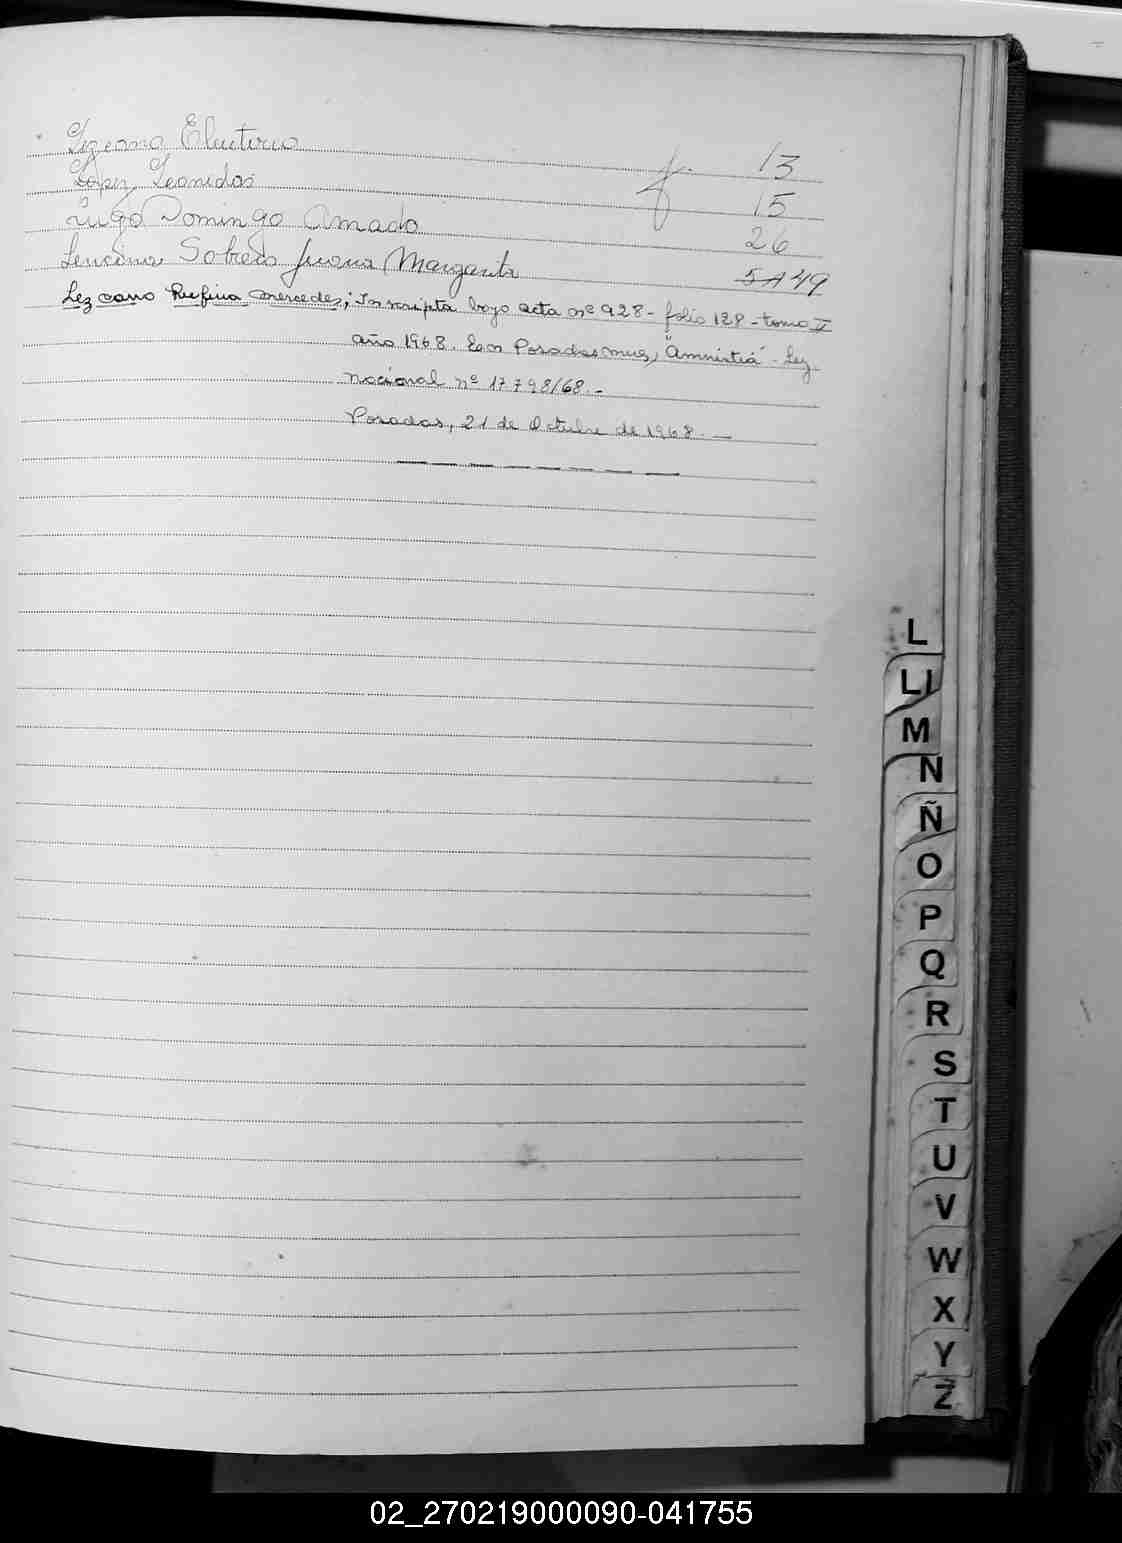 Lezcano Eleuterio 13
Lopez, Leonidas f. 15
Lugo Domingo Amado 26
Lencina Sotredo Juana Margarita 5A 49
Lezcano Rufina mercedes; Inscripta bajo acta nº 928 - folio 128 - tomo II
año 1968. Posadas mnes, "Amnistia" - Ley
nacional nº 17798/68. -
Posadas, 21 de Octubre de 1968. —
L
LL
M
N
Ñ
O
P
Q
R
S
T
U
V
W
X
Y
Z
02_270219000090-041755